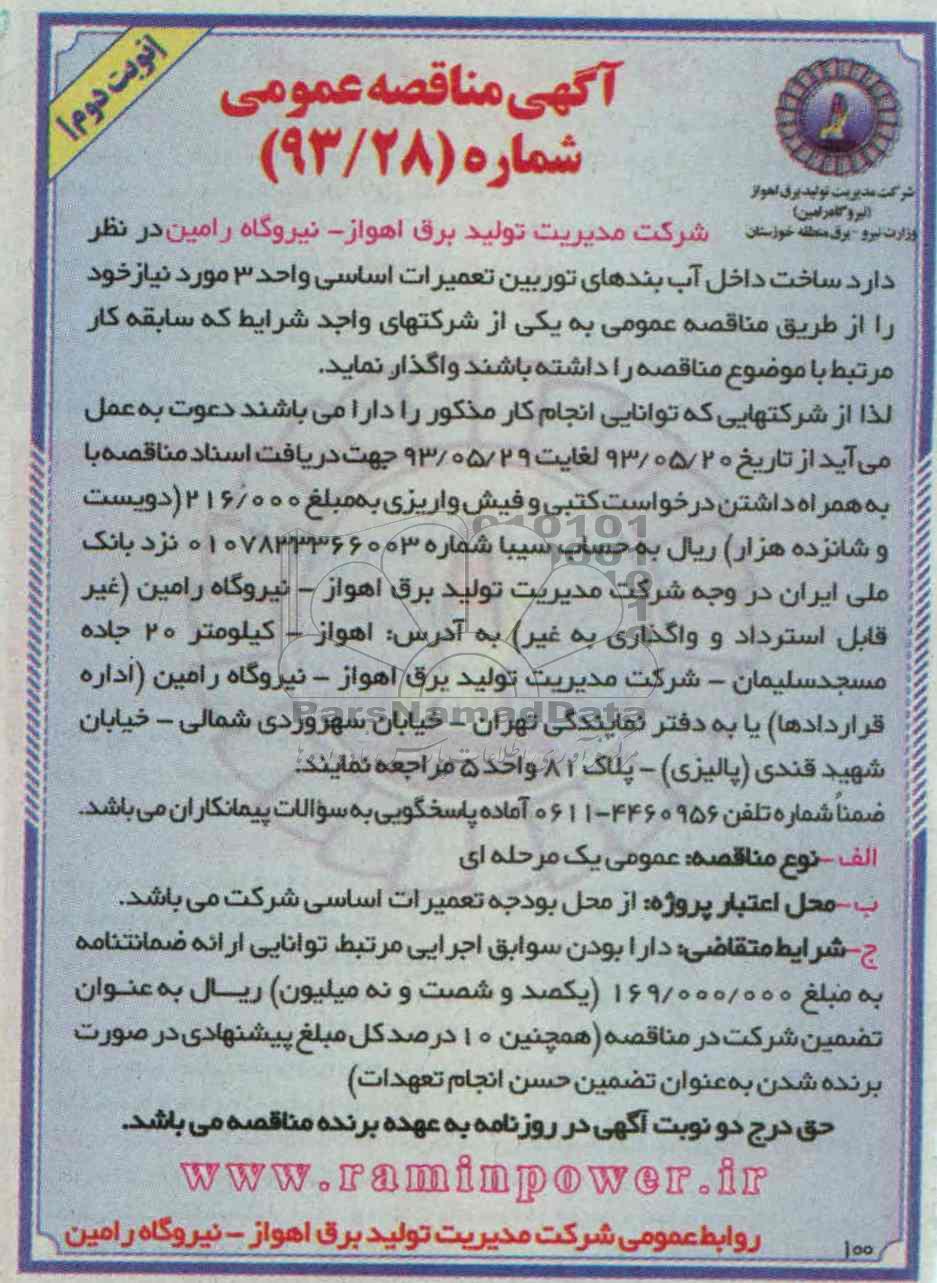 (نوبت دوم)
آگهی مناقصه عمومی
شماره (۹۳/۲۸)
شرکت مدیریت تولید برق اهواز
(نیروگاه رامین)
وزارت نیرو - برق منطقه خوزستان
شرکت مدیریت تولید برق اهواز- نیروگاه رامین در نظر
دارد ساخت داخل آب بندهای توربین تعمیرات اساسی واحد ۳ مورد نیاز خود
را از طریق مناقصه عمومی به یکی از شرکتهای واجد شرایط که سابقه کار
مرتبط با موضوع مناقصه را داشته باشند واگذار نماید.
لذا از شرکتهایی که توانایی انجام کار مذکور را دارا می باشند دعوت به عمل
می آید از تاریخ ۹۳/۰۵/۲۰ لغایت ۹۳/۰۵/۲۹ جهت دریافت اسناد مناقصه با
به همراه داشتن درخواست کتبی و فیش واریزی به مبلغ ۲۱۶/۰۰۰ (دویست
و شانزده هزار) ریال به حساب سیبا شماره ۰۱۰۷۸۳۳۳۶۶۰۰۳ نزد بانک
ملی ایران در وجه شرکت مدیریت تولید برق اهواز - نیروگاه رامین (غیر
قابل استرداد و واگذاری به غیر) به آدرس: اهواز - کیلومتر ۲۰ جاده
مسجدسلیمان - شرکت مدیریت تولید برق اهواز - نیروگاه رامین (اداره
قراردادها) یا به دفتر نمایندگی تهران - خیابان سهروردی شمالی - خیابان
شهید قندی (پالیزی) - پلاک ۸۱ واحد ۵ مراجعه نمایند.
ضمناً شماره تلفن ۴۴۶۰۹۵۶-۰۶۱۱ آماده پاسخگویی به سؤالات پیمانکاران می باشد.
الف -نوع مناقصه: عمومی یک مرحله ای
ب-محل اعتبار پروژه: از محل بودجه تعمیرات اساسی شرکت می باشد.
ج-شرایط متقاضی: دارا بودن سوابق اجرایی مرتبط، توانایی ارائه ضمانتنامه
به مبلغ ۱۶۹/۰۰۰/۰۰۰ (یکصد و شصت و نه میلیون) ریال به عنوان
تضمین شرکت در مناقصه (همچنین ۱۰ درصد کل مبلغ پیشنهادی در صورت
برنده شدن به عنوان تضمین حسن انجام تعهدات)
حق درج دو نوبت آگهی در روزنامه به عهده برنده مناقصه می باشد.
www.raminpower.ir
روابط عمومی شرکت مدیریت تولید برق اهواز - نیروگاه رامین
۱۰۰
ParsNamadData